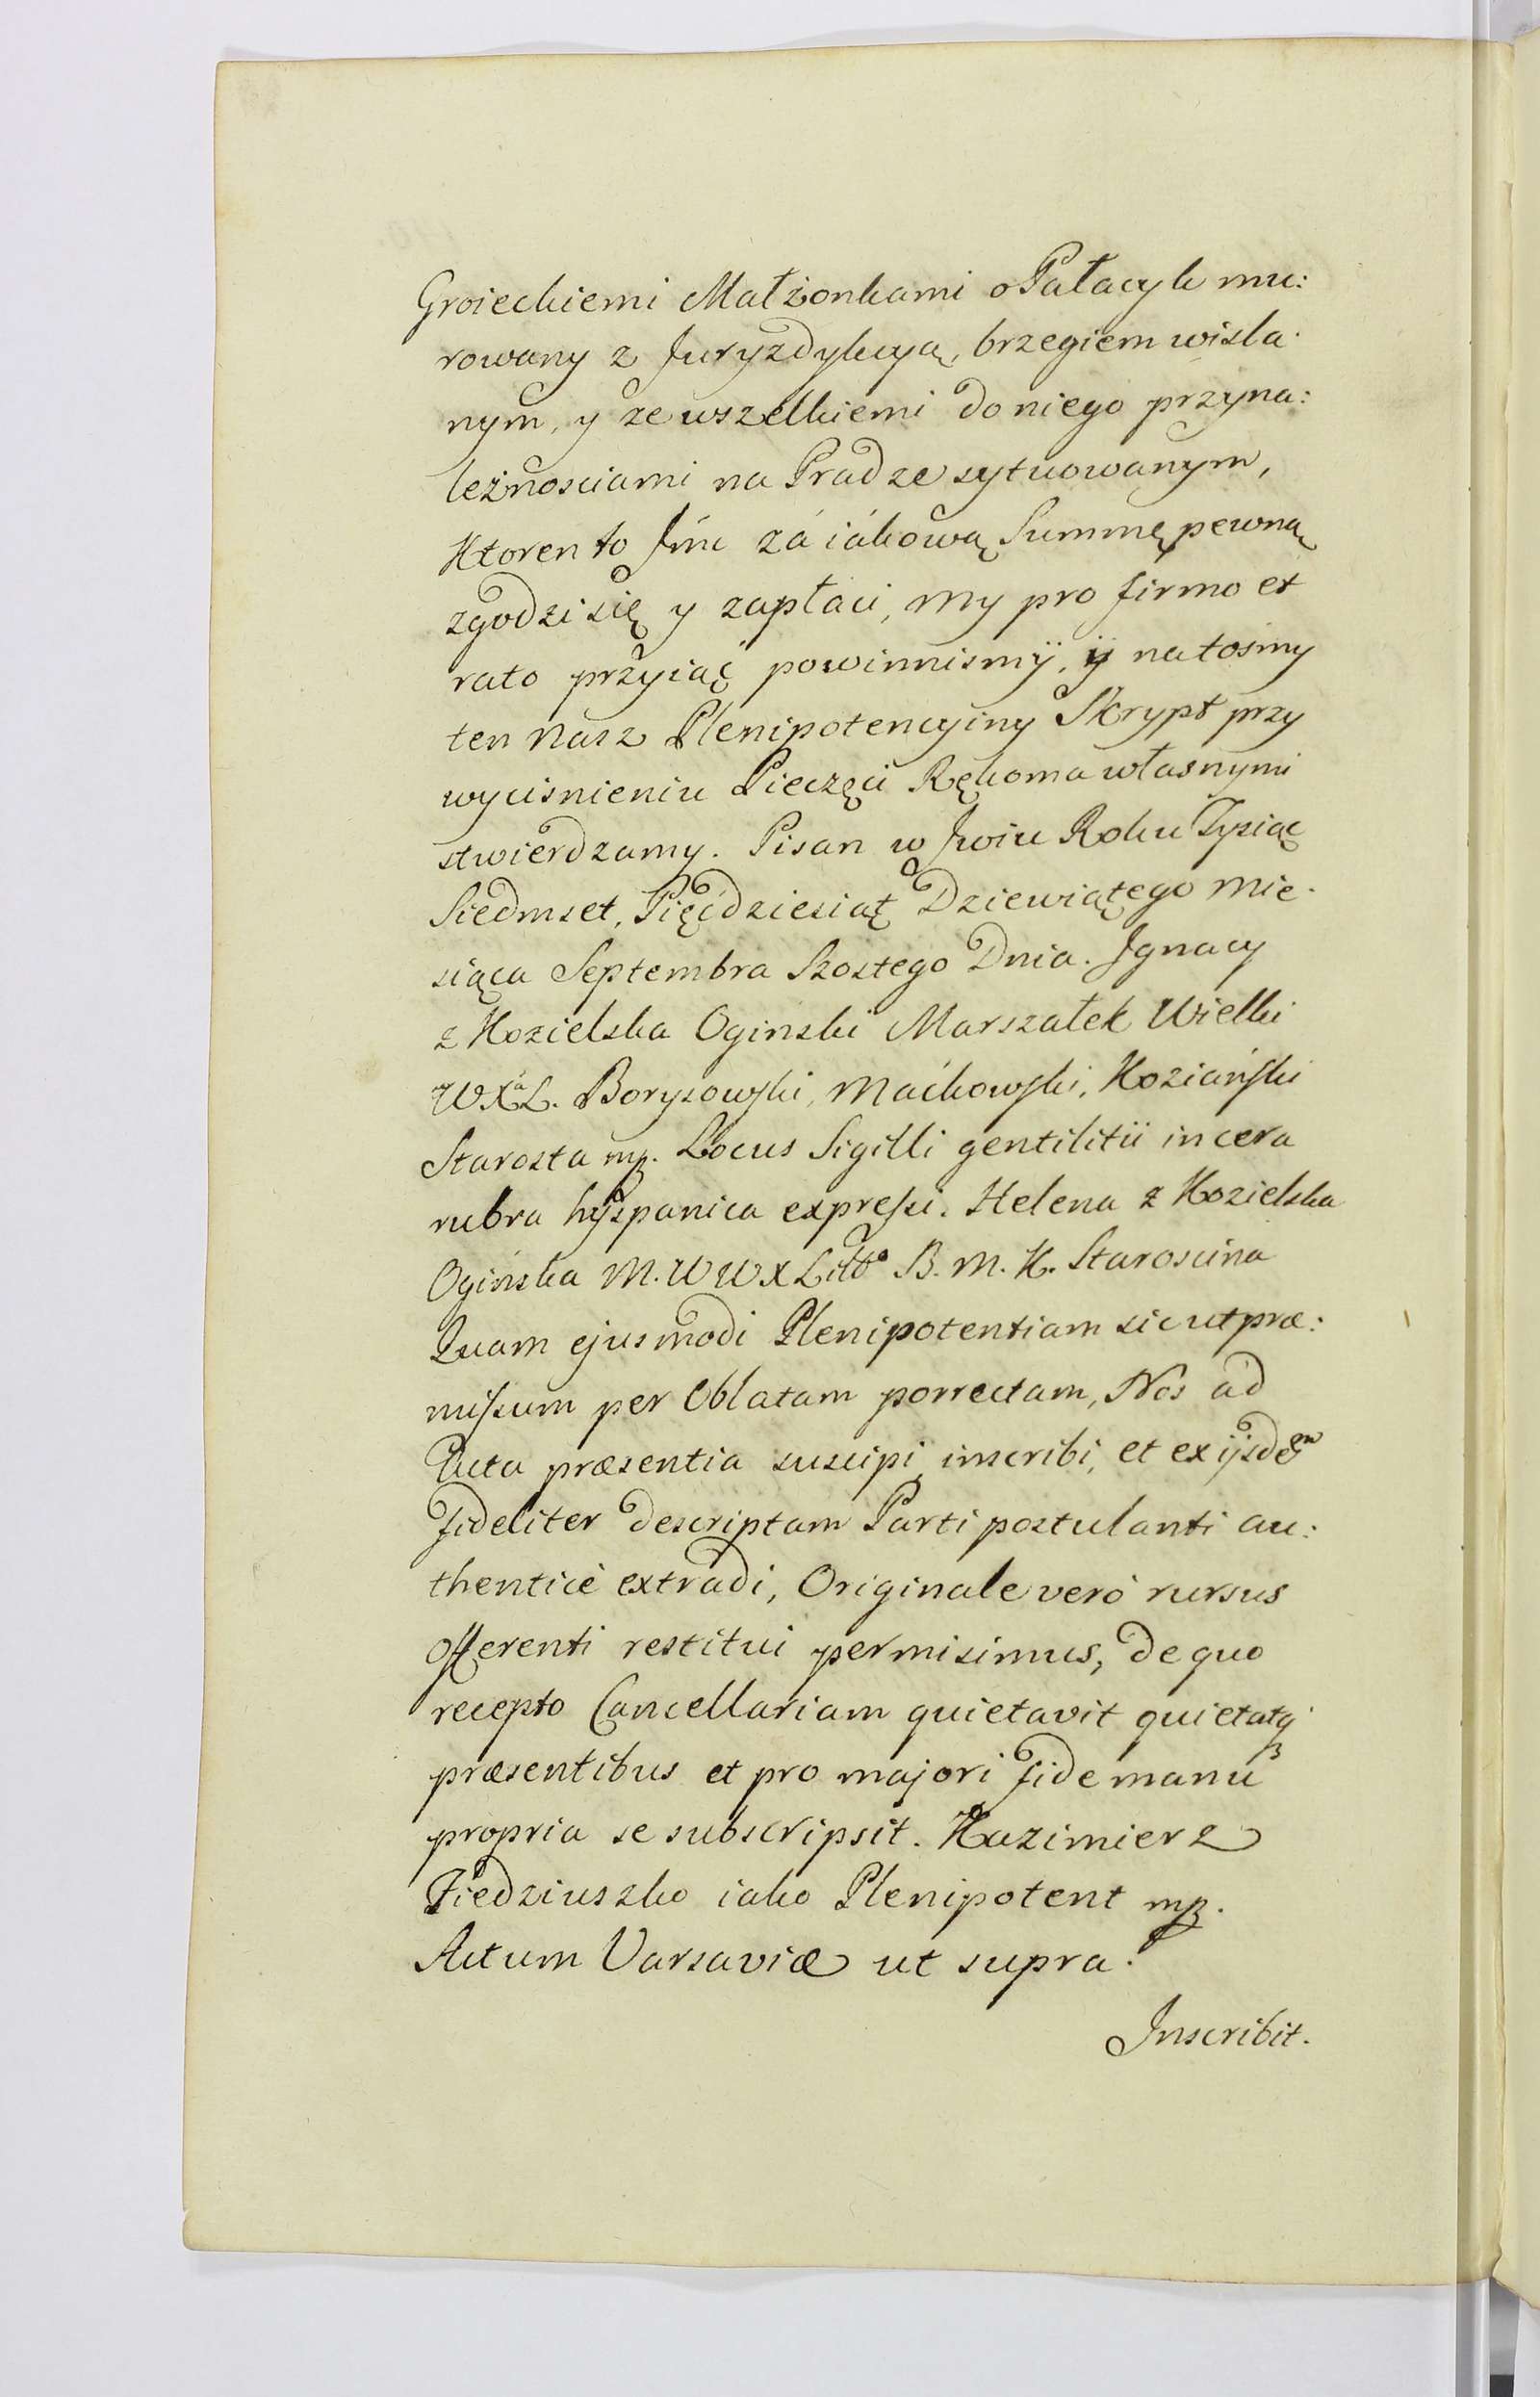 Groieckiemi Małżonkami o Pałacyk mu:
rowany z Juryzdykcyą, brzegiem wisla.
nym, y ze wszelkiemi do niego przyna:
leżnosciami na Pradze sytuowanym,
Ktoren to Jmć zá iákową Summę pewną
zgodzi się y zapłaci, my pro firmo et
rato przyiąć powinnismÿ, ÿ na tosmy
ten Nasz Plenipotencyiny Skrypt przy
wycisnieniu Pieczęci Rękoma własnymi
stwierdzamy. Pisan w Jwiu Roku Tysiąc
Siedmset, Pięćdziesiąt Dziewiątego Mie.
siąca Septembra Szostego Dnia. Jgnacy
z Kozielska Oginski Marszałek Wielki
WXaL. Borysowski, Maćkowski, Koziański
Starosta mp. Locus Sigilli gentilitii in cera
rubra hÿspanica expressi. Helena z Kozielska
Ogińska M. W W X Litto B. M. K. Staroscina
Quam ejusmodi Plenipotentiam sicut præ:
missum per Oblatam porrectam, Nos ad
Acta præsentia suscipi, inscribi, et ex ijsdem
fideliter descriptam Parti postulanti au:
thenticè extradi, Originale verò rursus
offerenti restitui permisimus, de quo
recepto Cancellariam quietavit quietatq3
præsentibus et pro majori fide manu
propria se subscripsit. Kazimierz
Fiedziuszko iako Plenipotent mp.
Actum Varsaviæ ut supra.
Inscribit.